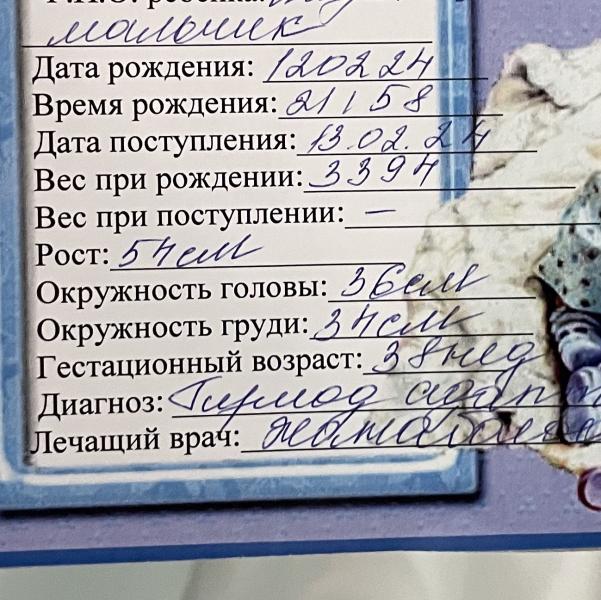 Ф.И.О. ребенка:
мальчик
Дата рождения: 120224
Время рождения: 21 58
Дата поступления: 13.02.24
Вес при рождении: 3394
Вес при поступлении: —
Рост: 54см
Окружность головы: 36см
Окружность груди: 34см
Гестационный возраст: 38нед
Диагноз: адап
Лечащий врач: